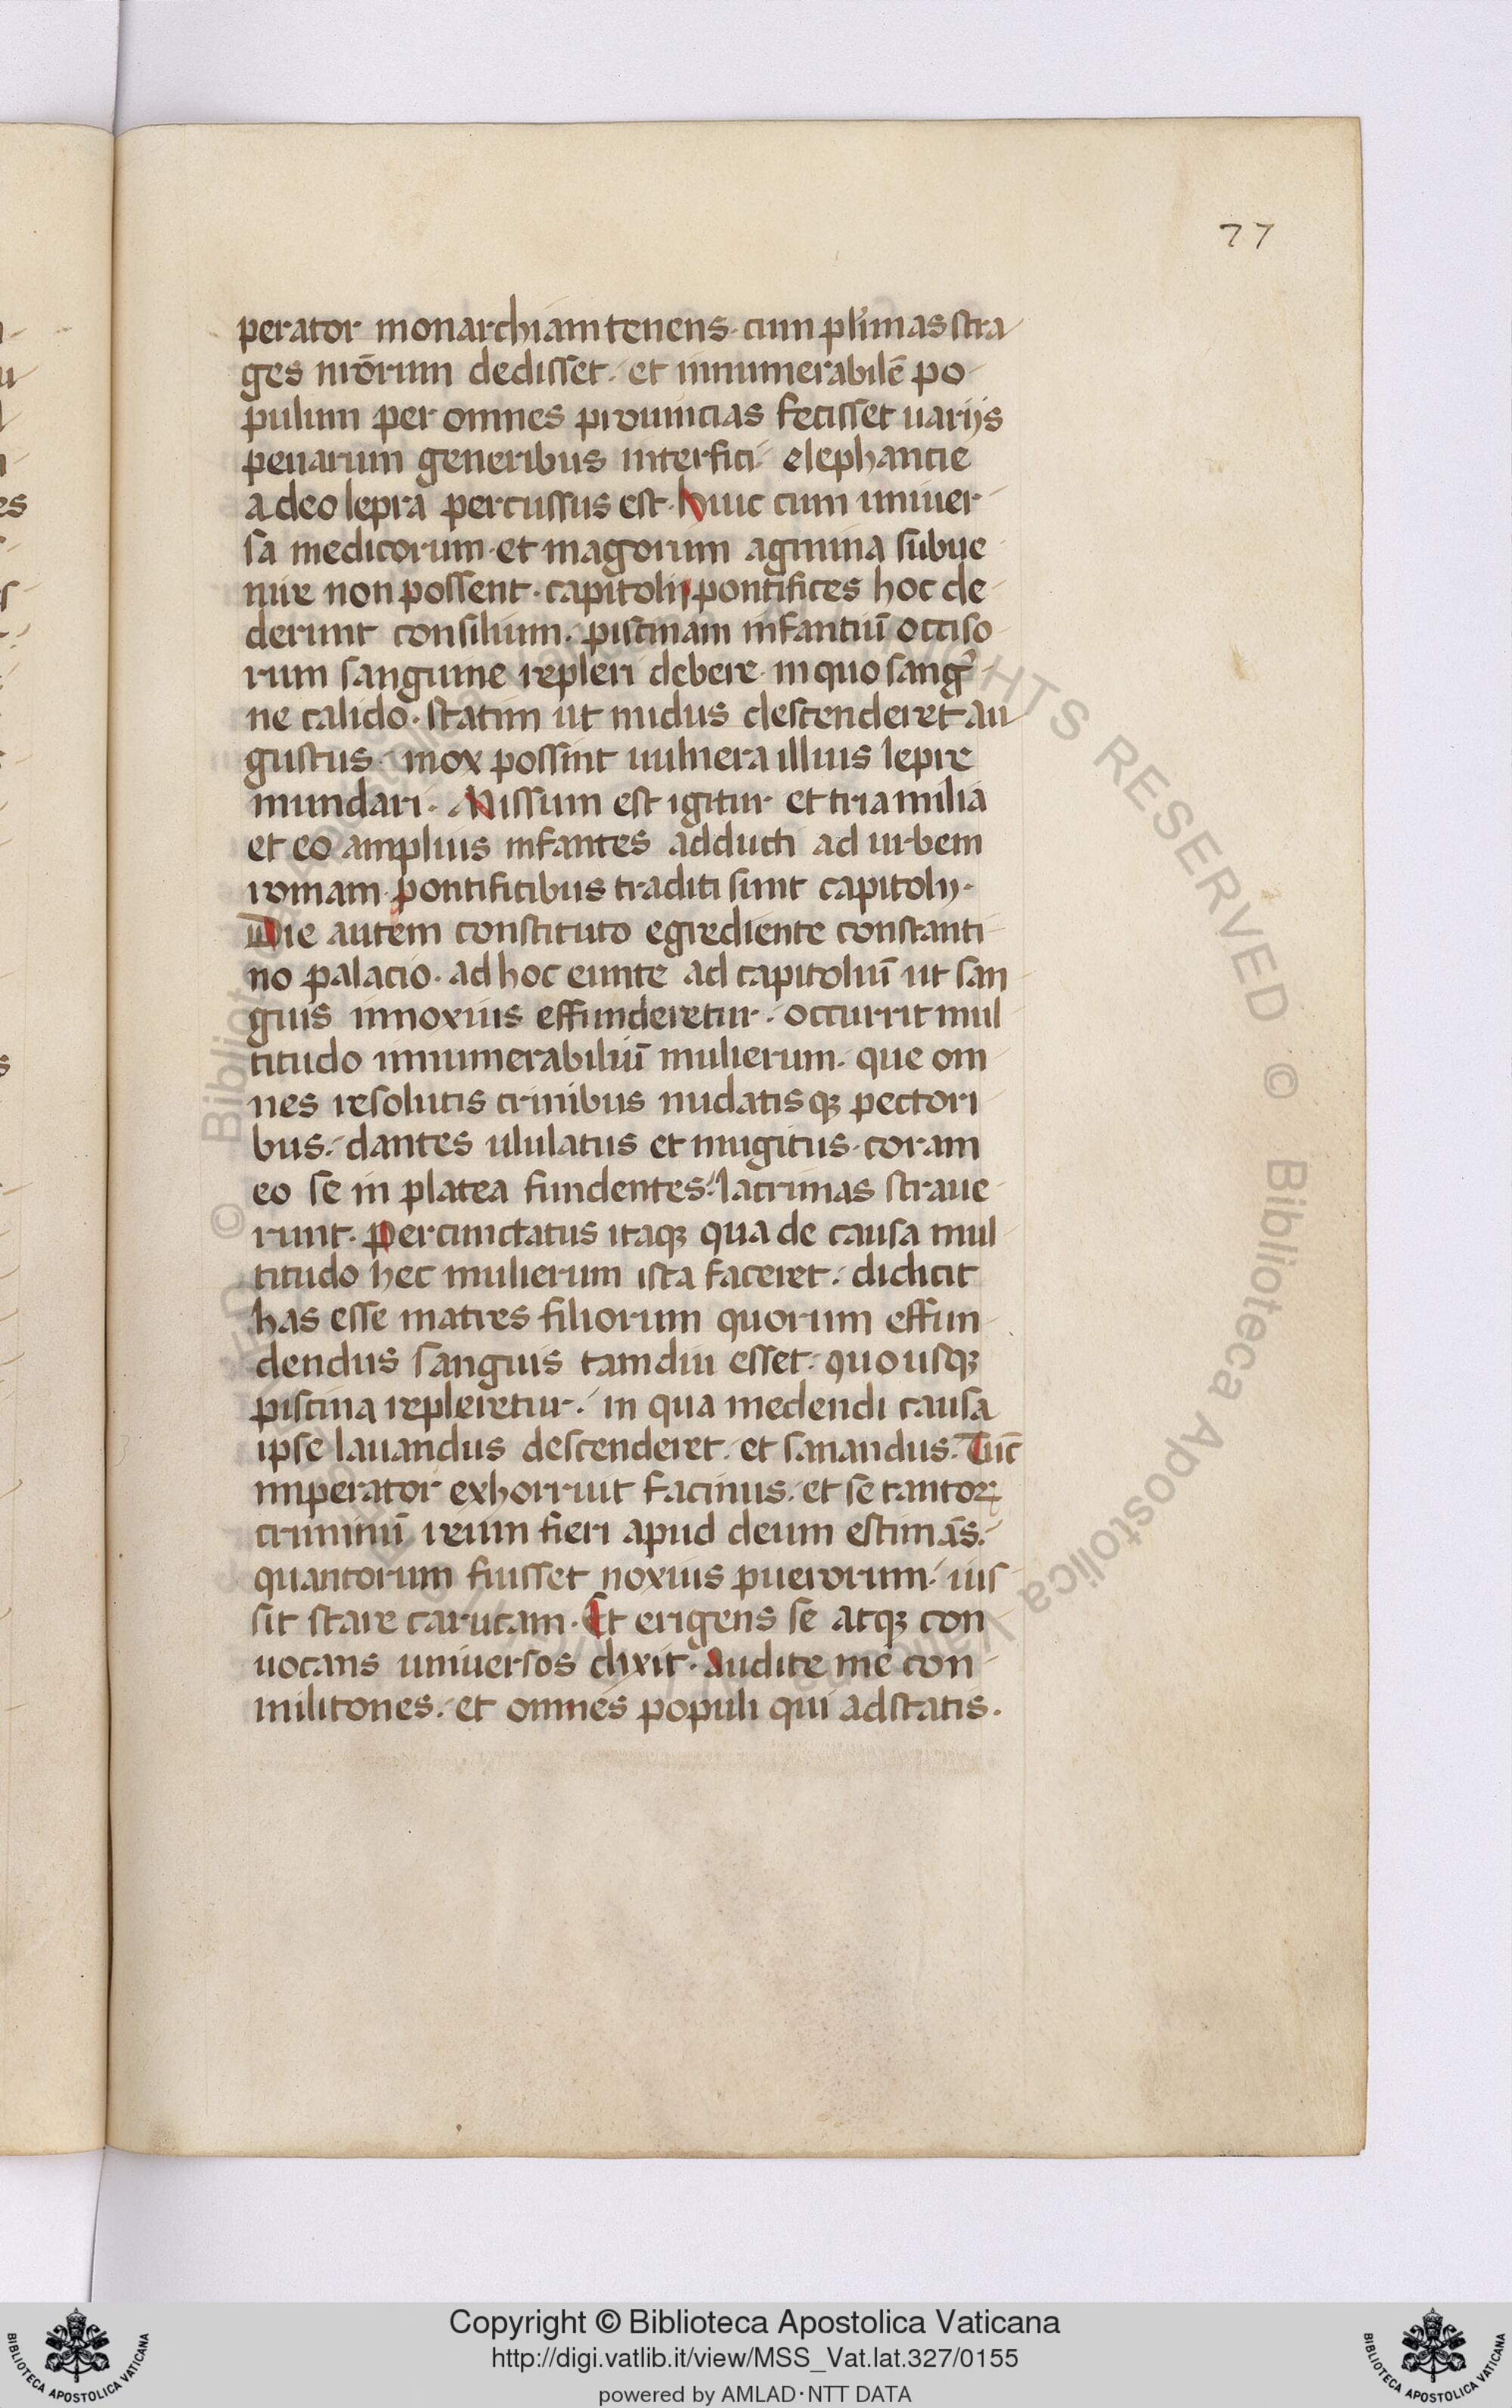 77
perator monarchiam tenens. cum pl'imas stra
ges m̄orum dedisset. et innumerabilē po
pulum per omnes prouincias fecisset uarijs
penarum generibus interfici. elephancie
a deo lepra percussus est. huic cum uniuer
sa medicorum. et magorum agmina subue
nire non possent. capitolij pontifices hoc de
derunt consilium. piscinam infantiū occiso
rum sanguine repleri debere. in quo sang
ne calido. statim ut nudus descenderet au
gustus. mox possint uulnera illius lepre
mundari. Missum est igitur et tria milia
et eo amplius infantes adducti ad urbem
romam. pontificibus traditi sunt capitolij.
Die autem constituto egrediente constanti
no palacio. ad hoc eunte ad capitoliū ut san
guis innoxius effunderetur. occurrit mul
titudo innumerabiliū mulierum. que om
nes resolutis crinibus nudatisqꝫ pectori
bus. dantes ululatus et mugitus. coram
eo se in platea fundentes. lacrimas straue
runt. Percunctatus itaqꝫ qua de causa mul
titudo hec mulierum ista faceret. didicit
has esse matres filiorum quorum effun
dendus sanguis tamdiu esset. quousqꝫ
piscina repleretur. in qua medendi causa
ipse lauandus descenderet. et sanandus. Tūc
imperator exhorruit facinus. et se tantoꝝ
criminū reum fieri apud deum estimās.
quantorum fuisset noxius puerorum. ius
sit stare carucam. Et erigens se atqꝫ con
uocans uniuersos dixit. Audite me con
militones. et omnes populi qui adstatis.
© Biblioteca Apostolica Vaticana
RIGHTS RESERVED
Copyright © Biblioteca Apostolica Vaticana
http://digi.vatlib.it/view/MSS_Vat.lat.327/0155
powered by AMLAD·NTT DATA
BIBLIOTECA APOSTOLICA VATICANA
BIBLIOTECA APOSTOLICA VATICANA